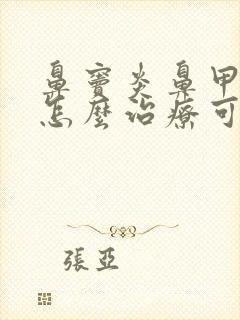 鼻竇炎鼻甲
怎麼治療可
張亞